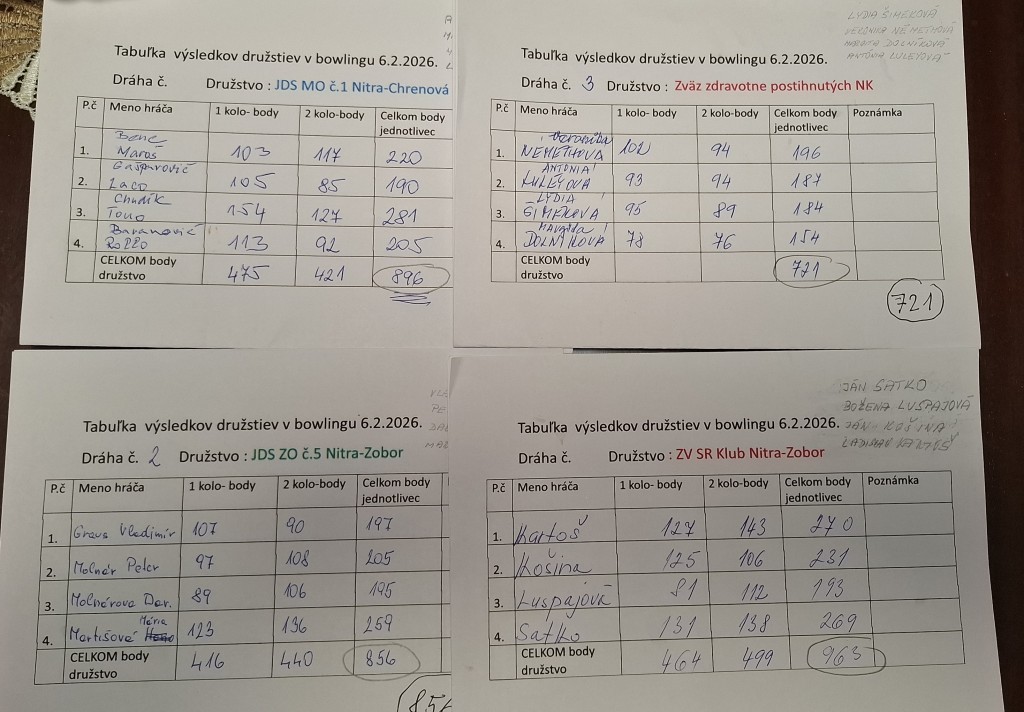 Tabuľka výsledkov družstiev v bowlingu 6.2.2026.
Dráha č. Družstvo : JDS MO č.1 Nitra-Chrenová
P.č Meno hráča 1 kolo- body 2 kolo-body Celkom body jednotlivec
1. Benc Maroš 103 117 220
2. Gašparovič Laco 105 85 190
3. Chudík Tono 154 127 281
4. Baranovič 113 92 205
CELKOM body družstvo 475 421 896
LYDIA ŠIMEKOVÁ
VERONIKA NEMETHOVÁ
DOLNÍKOVÁ
ANTÓNIA LULEYOVÁ
Tabuľka výsledkov družstiev v bowlingu 6.2.2026.
Dráha č. 3 Družstvo : Zväz zdravotne postihnutých NK
P.č Meno hráča 1 kolo-body 2 kolo-body Celkom body jednotlivec Poznámka
1. NEMETHOVA 102 94 196
2. ANTONIA LULEYOVA 93 94 187
3. LYDIA ŠIMEKOVA 95 89 184
4. DOLNIKOVA 78 76 154
CELKOM body družstvo 721
721
Tabuľka výsledkov družstiev v bowlingu 6.2.2026.
Dráha č. 2 Družstvo : JDS ZO č.5 Nitra-Zobor
P.č Meno hráča 1 kolo- body 2 kolo-body Celkom body jednotlivec
1. Vladimír 107 90 197
2. Molnár Peter 97 108 205
3. Molnárova Dar. 89 106 195
4. Martišová Mária 123 136 259
CELKOM body družstvo 416 440 856
856
JÁN SATKO
BOŽENA LUSPAJOVÁ
JÁN KOŠINA
LADISLAV KARTOŠ
Tabuľka výsledkov družstiev v bowlingu 6.2.2026.
Dráha č. Družstvo : ZV SR Klub Nitra-Zobor
P.č Meno hráča 1 kolo-body 2 kolo-body Celkom body jednotlivec Poznámka
1. Kartoš 127 143 270
2. Košina 125 106 231
3. Luspajová 81 112 193
4. Satko 131 138 269
CELKOM body družstvo 464 499 963